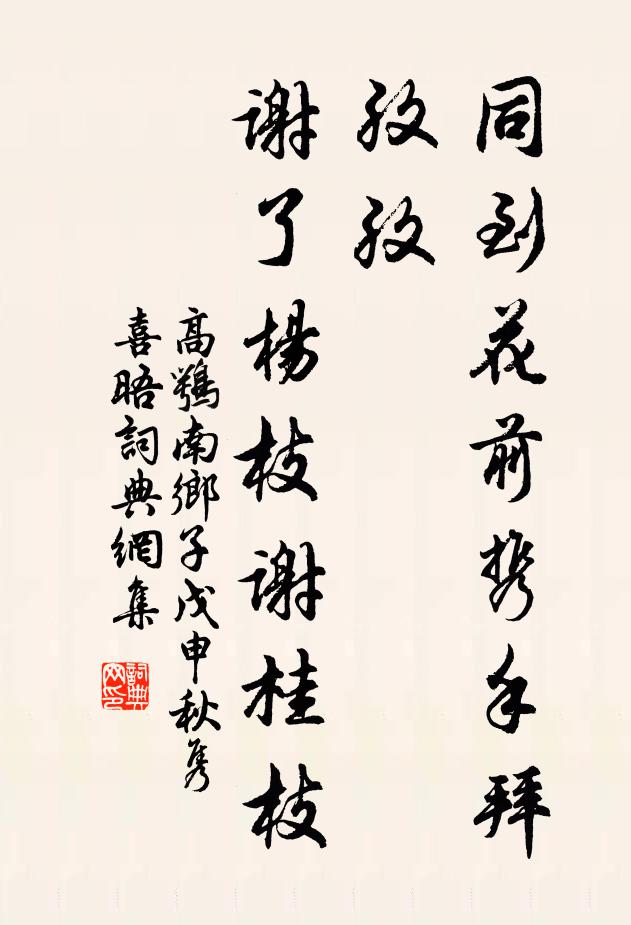 同到花前携手拜
孜孜
谢了楊枝谢桂枝
高鶚南鄉子戊申秋隽
喜晤詞典網集
詞典
网印